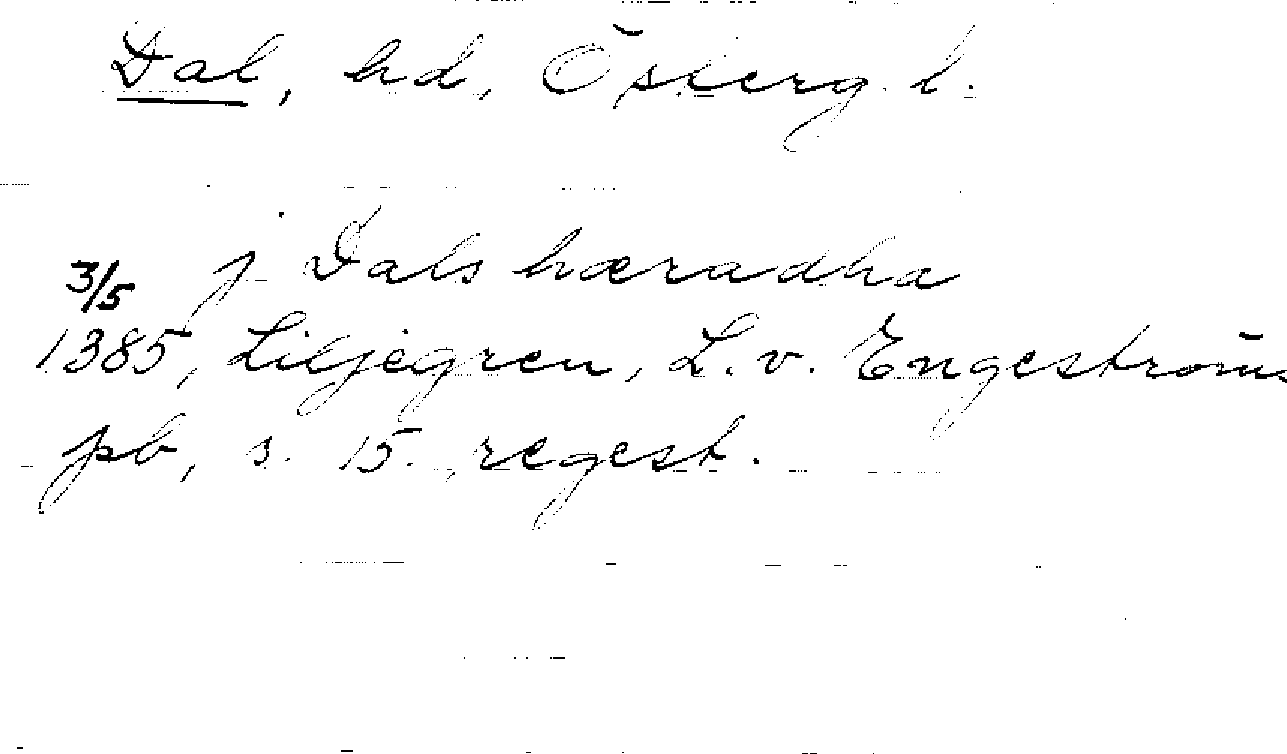 Dal, hd, Österg. l.
j Dals hæradha
3/5
1385, Liljegren, L. v. Engeströms
pb, s. 15. regest.